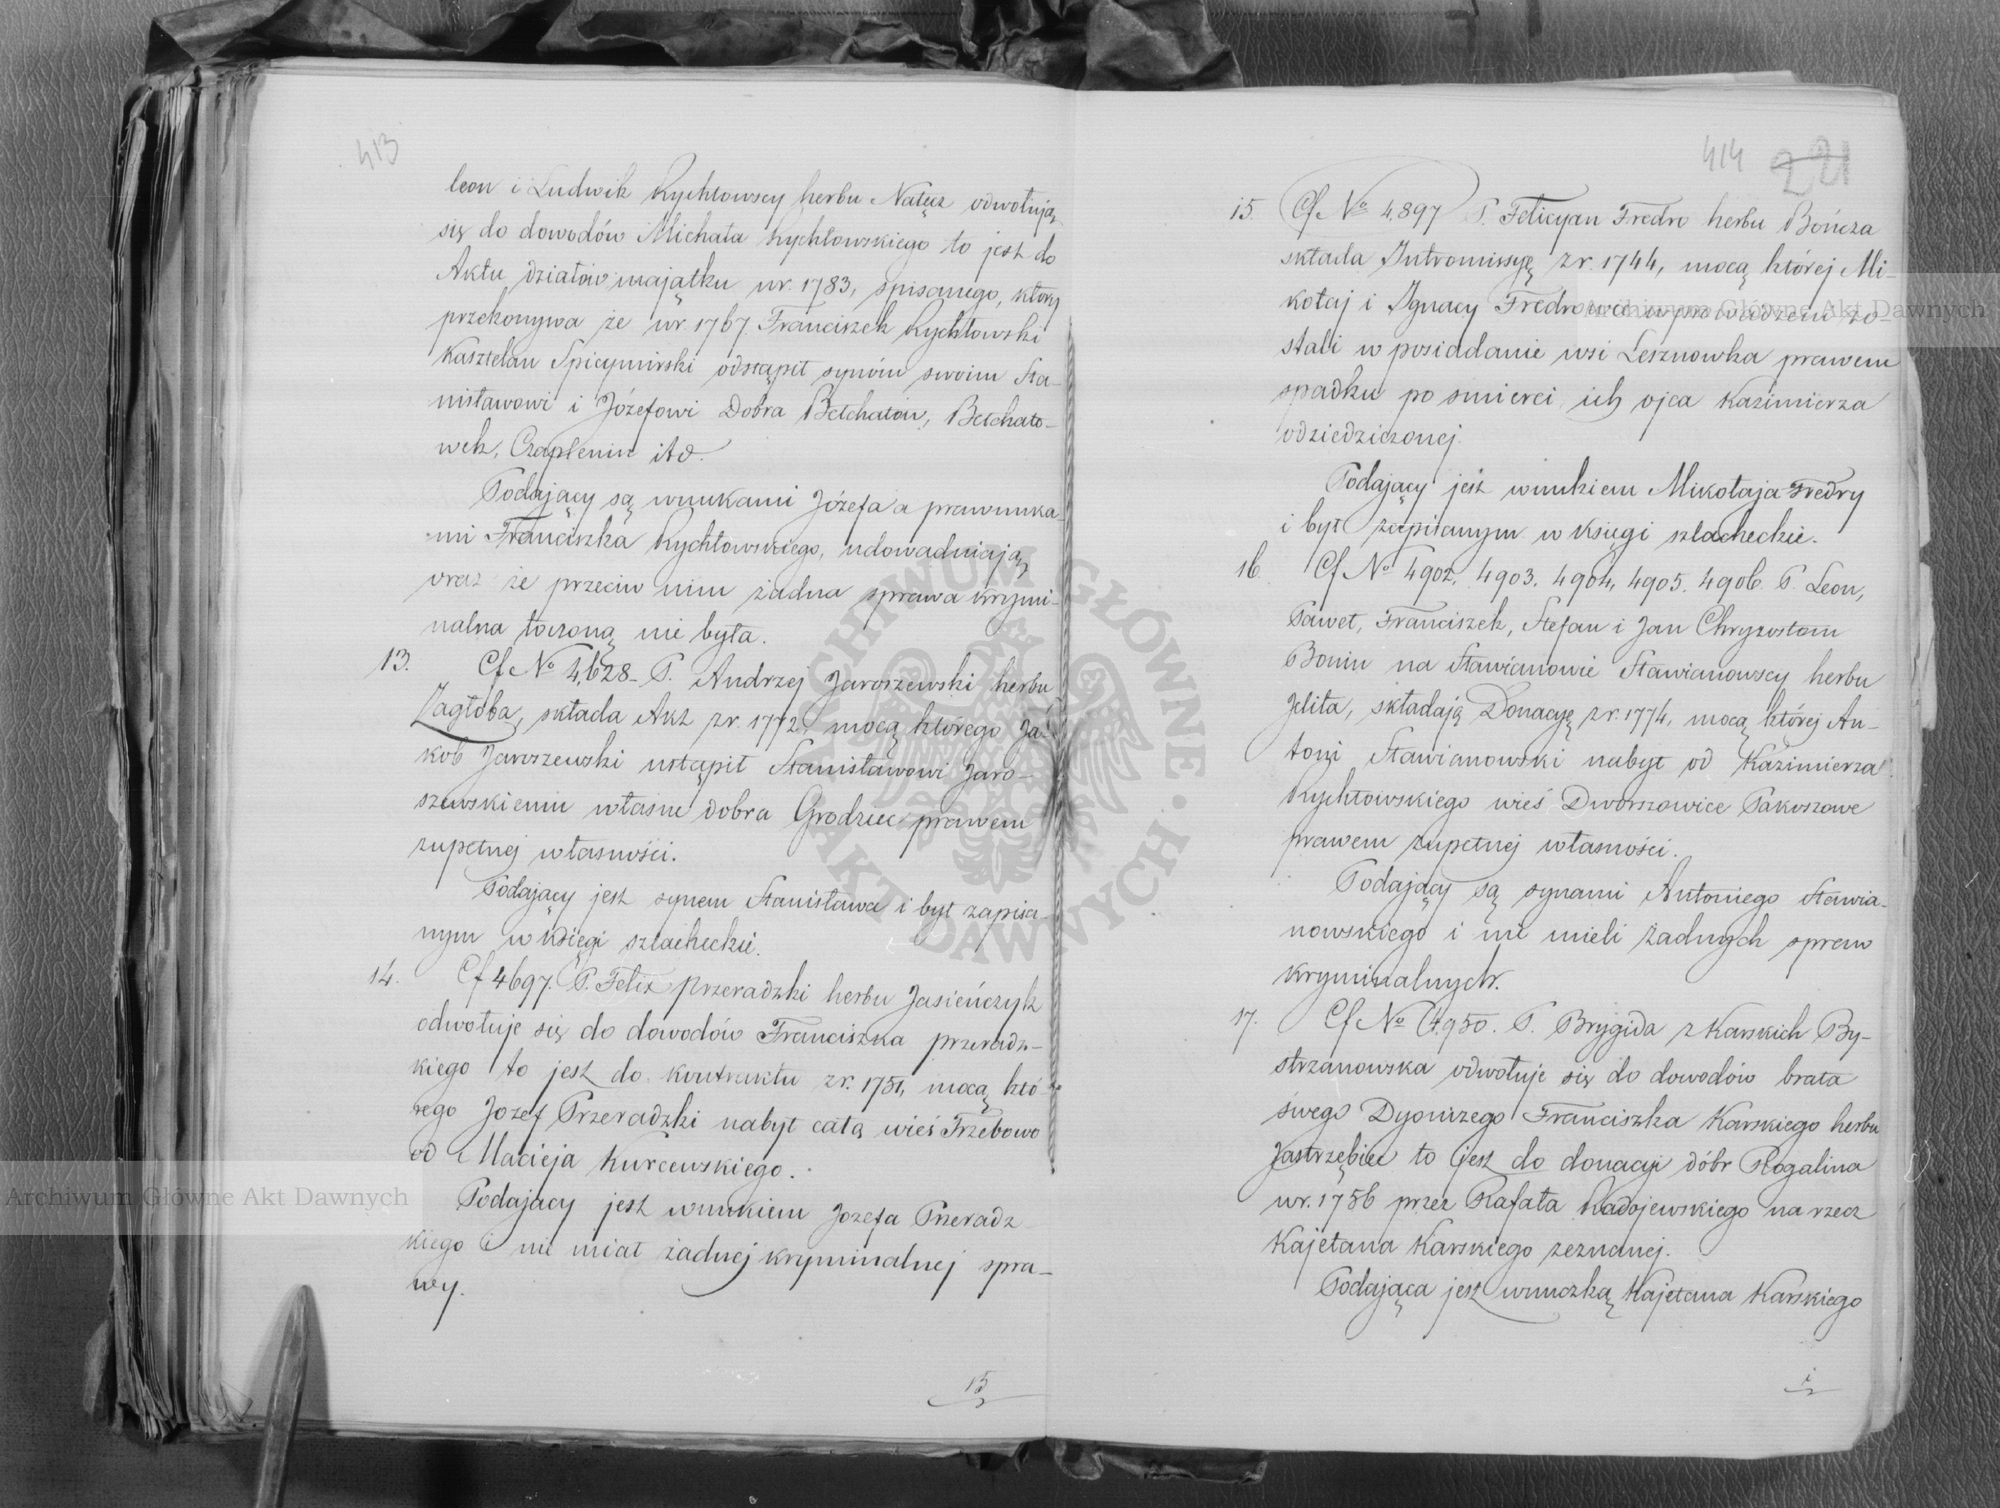 413
leon i Ludwik Rychłowscy herbu Nałęcz odwołują
się do dowodów Michała Rychłowskiego to jest do
Aktu działów majątku w r. 1783, spisanego, który
przekonywa że w r. 1767. Franciszek Rychłowski
Kasztelan Spicymirski odstąpił synóm swoim Sta-
nisławowi i Józefowi Dobra Bełchatów, Bełchato-
wek, Czaplenin itd.
Podający są wnukami Józefa a prawnuka-
mi Franciszka Rychłowskiego, udowadniają
oraz że przeciw nim żadna sprawa krymi-
nalna toczoną nie była.
13. Cf № 4,628_ P. Andrzej Jaroszewski herbu
Zagłoba, składa Akt z r. 1772. mocą którego Ja-
kob Jaroszewski ustąpił Stanisławowi Jaro-
szewskiemu własne dobra Grodziec prawem
zupełnej własności.
Podający jest synem Stanisława i był zapisa-
nym w księgi szlacheckie.
14. Cf 4697. P. Felix Przeradzki herbu Jasieńczyk
odwołuje się do dowodów Franciszka Przeradz-
kiego to jest do kontraktu z r. 1751, mocą któ-
rego Jozef Przeradzki nabył całą wieś Trzebowo
od Macieja Kurcewskiego.
Podajacy jest wnukiem Jozefa Przeradz
kiego i nie miał żadnej kryminalnej spra-
wy.
15
414 221
15. Cf № 4,897 P. Felicyan Fredro herbu Bończa
składa Intromissyę z r. 1744, mocą której Mi-
kołaj i Ignacy Fredrowie wprowadzeni zo-
stali w posiadanie wsi Lesznowka prawem
spadku po smierci ich ojca Kazimierza
odziedziczonej.
Podający jest wnukiem Mikołaja Fredry
i był zapisanym w księgi szlacheckie.
16. Cf № 4902, 4903. 4904, 4905. 4906. P. Leon,
Paweł, Franciszek, Stefan i Jan Chryzostom
Bonin na Sławianowie Sławianowscy herbu
Jelita, składają Donacyę z r. 1774, mocą której An-
toni Sławianowski nabył od Kaźimierza
Rychłowskiego wieś Dworszowice Pakoszowe
prawem zupełnej własności.
Podający są synami Antoniego Sławia-
nowskiego i nie mieli żadnych spraw
kryminalnych.
17. Cf № 4,950. P. Brygida z Karskich By-
strzanowska odwołuje się do dowodów brata
swego Dyonizego Franciszka Karskiego herbu
Jastrzębiec to jest do donacyi dóbr Rogalina
w r. 1756 przez Rafała Radojewskiego na rzecz
Kajetana Karskiego zeznanej.
Podająca jest wnuczką Kajetana Karskiego
i
Archiwum Główne Akt Dawnych
Archiwum Główne Akt Dawnych
ARCHIWUM GŁÓWNE AKT DAWNYCH